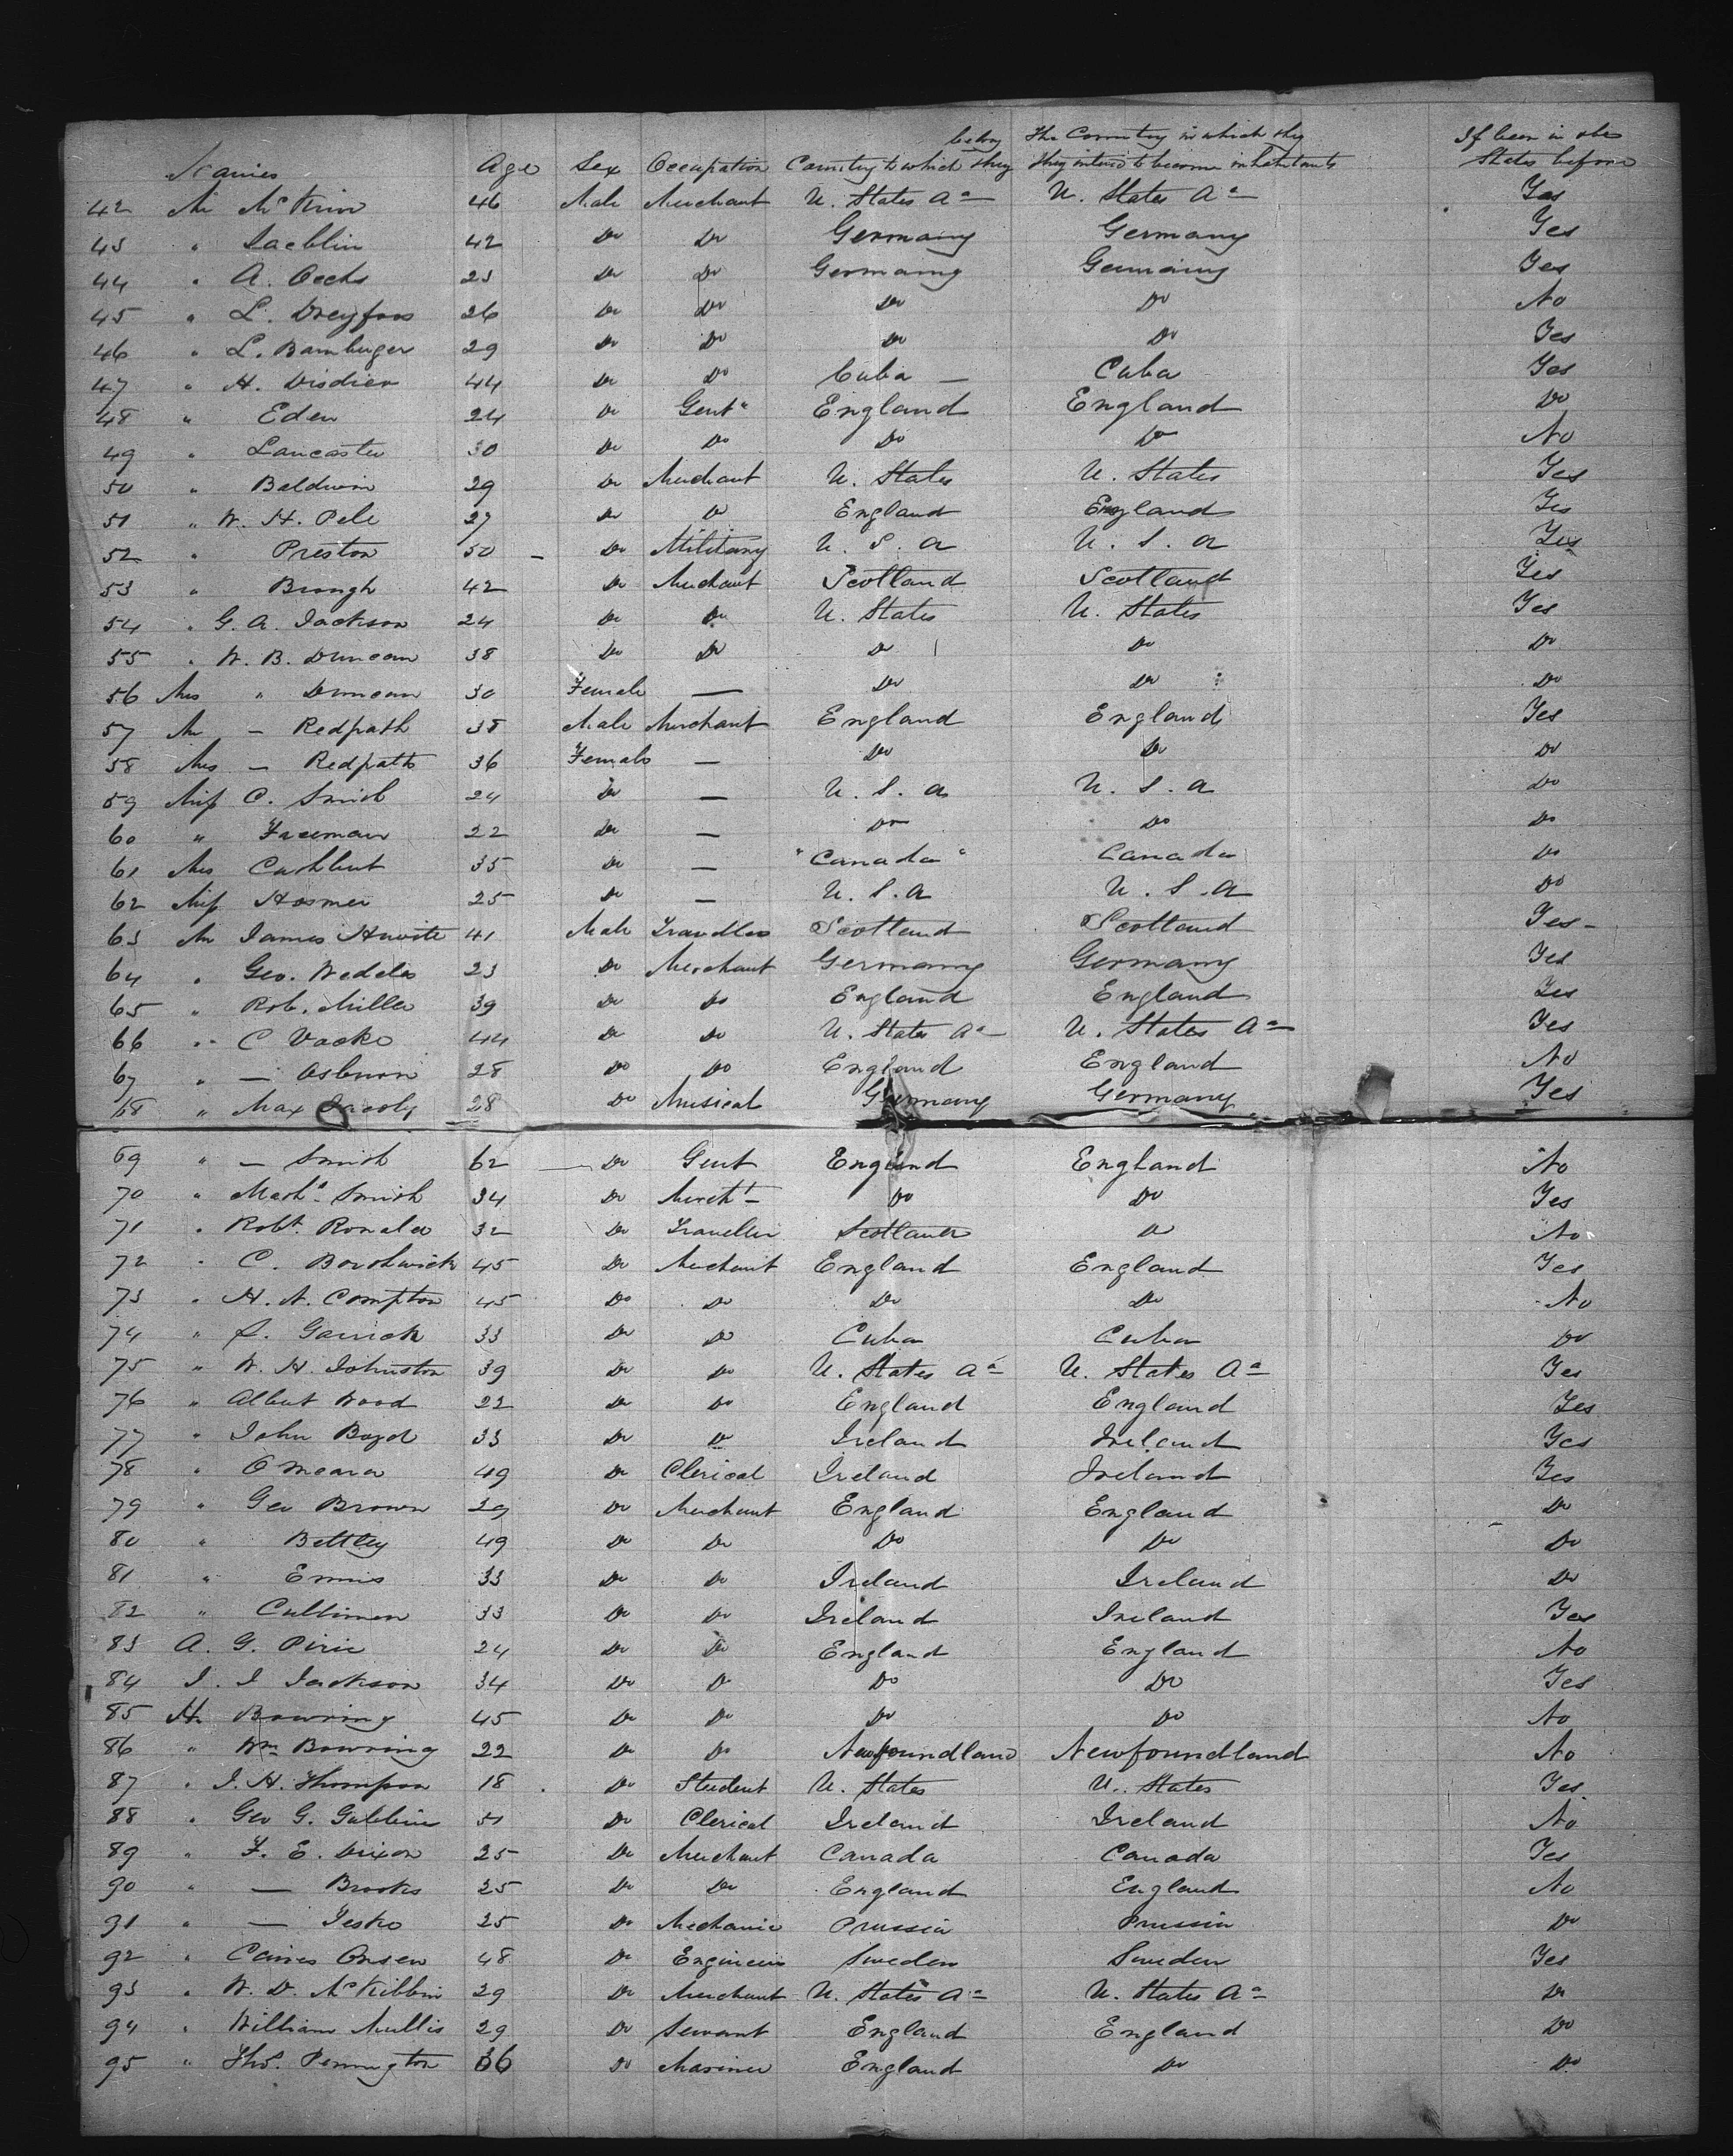 belong The Country in which they If been in the
Names Age Sex Occupation Country to which they they intend to become inhabitants States before
42 Mr Mc Kim 46 Male Merchant U. States Aa U. States Aa Yes
43 " 42 Do Do Germany Germany Yes
44 " A. Oechs 23 Do Do Germany Germany Yes
45 " L. Dreyfoos 26 Do Do Do Do No
46 " L. Bamburger 29 Do Do Do Do Yes
47 " H. Disdier 44 Do Do Cuba — Cuba Yes
48 " Eden 24 Do Gent" England England Do
49 " Lancaster 30 Do Do Do Do No
50 " Baldwin 29 Do Merchant U. States U. States Yes
51 " W. H. Pele 27 Do Do England England Yes
52 " Preston 50 — Do Military U. S. A U. S. A Yes
53 " Brough 42 Do Merchant Scotland Scotland Yes
54 " G. A. Jackson 24 Do Do U. States U. States Yes
55 " W. B. Duncan 38 Do Do Do Do Do
56 Mrs " Duncan 30 Female — Do Do Do
57 Mr — Redpath 38 Male Merchant England England Yes
58 Mrs — Redpath 36 Female — Do Do Do
59 Miss C. Smith 24 Do — U. S. A U. S. A Do
60 " Freeman 22 Do — Do Do Do
61 Mrs Cuthbert 35 Do — "Canada" Canada Do
62 Miss Hosmer 25 Do — U. S. A U. S. A Do
63 Mr James 41 Male Traveller Scotland Scotland Yes —
64 " Geo. Weddle 23 Do Merchant Germany Germany Yes
65 " Rob. Miller 39 Do Do England England Yes
66 " C Vocke 44 Do Do U. States Aa U. States Aa Yes
67 " — Osborn 28 Do Do England England No
68 " Max Jacoby 28 Do Musical Germany Germany Yes
69 " — Smith 62 — Do Gent England England No
70 " Smith 34 Do Mercht Do Do Yes
71 " Robt. Ronald 32 Do Traveller Scotland Do No
72 " C. Borthwick 45 Do Merchant England England Yes
73 " H. N. Compton 45 Do Do Do Do No
74 " Garrick 33 Do Do Cuba Cuba Do
75 " W. H. Johnston 39 Do Do U. States Aa U. States Aa Yes
76 " Albert Wood 22 Do Do England England Yes
77 " John Boyd 33 Do Do Ireland Ireland Yes
78 " O'Meara 49 Do Clerical Ireland Ireland Yes
79 " Geo Brown 29 Do Merchant England England Do
80 " Bettley 49 Do Do Do Do Do
81 " Ennis 33 Do Do Ireland Ireland Do
82 " Cullimon 33 Do Do Ireland Ireland Yes
83 A. G. Pirie 24 Do Do England England No
84 J. J Jackson 34 Do Do Do Do Yes
85 Mr Bowring 45 Do Do Do Do No
86 " Wm Bowring 22 Do Do Newfoundland Newfoundland No
87 " J. H. Thompson 18 Do Student U. States U. States Yes
88 " Geo G. Gubbins 51 Do Clerical Ireland Ireland No
89 " F. E. Dixon 25 Do Merchant Canada Canada Yes
90 " — Brooks 25 Do Do England England No
91 " — Jesko 25 Do Mechanic Prussia Prussia Do
92 " 48 Do Engineer Sweden Sweden Yes
93 " W. D. McKibbin 29 Do Merchant U. States Aa U. States Aa Do
94 " William Mullis 29 Do Servant England England Do
95 " Thos. Pennington 36 Do Mariner England Do Do